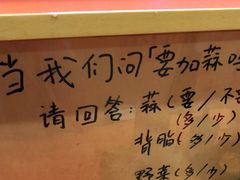 当我们问「要加蒜吗
请回答：蒜(要/不要
(多/少)
背脂(多/少)
野菜(多/少)